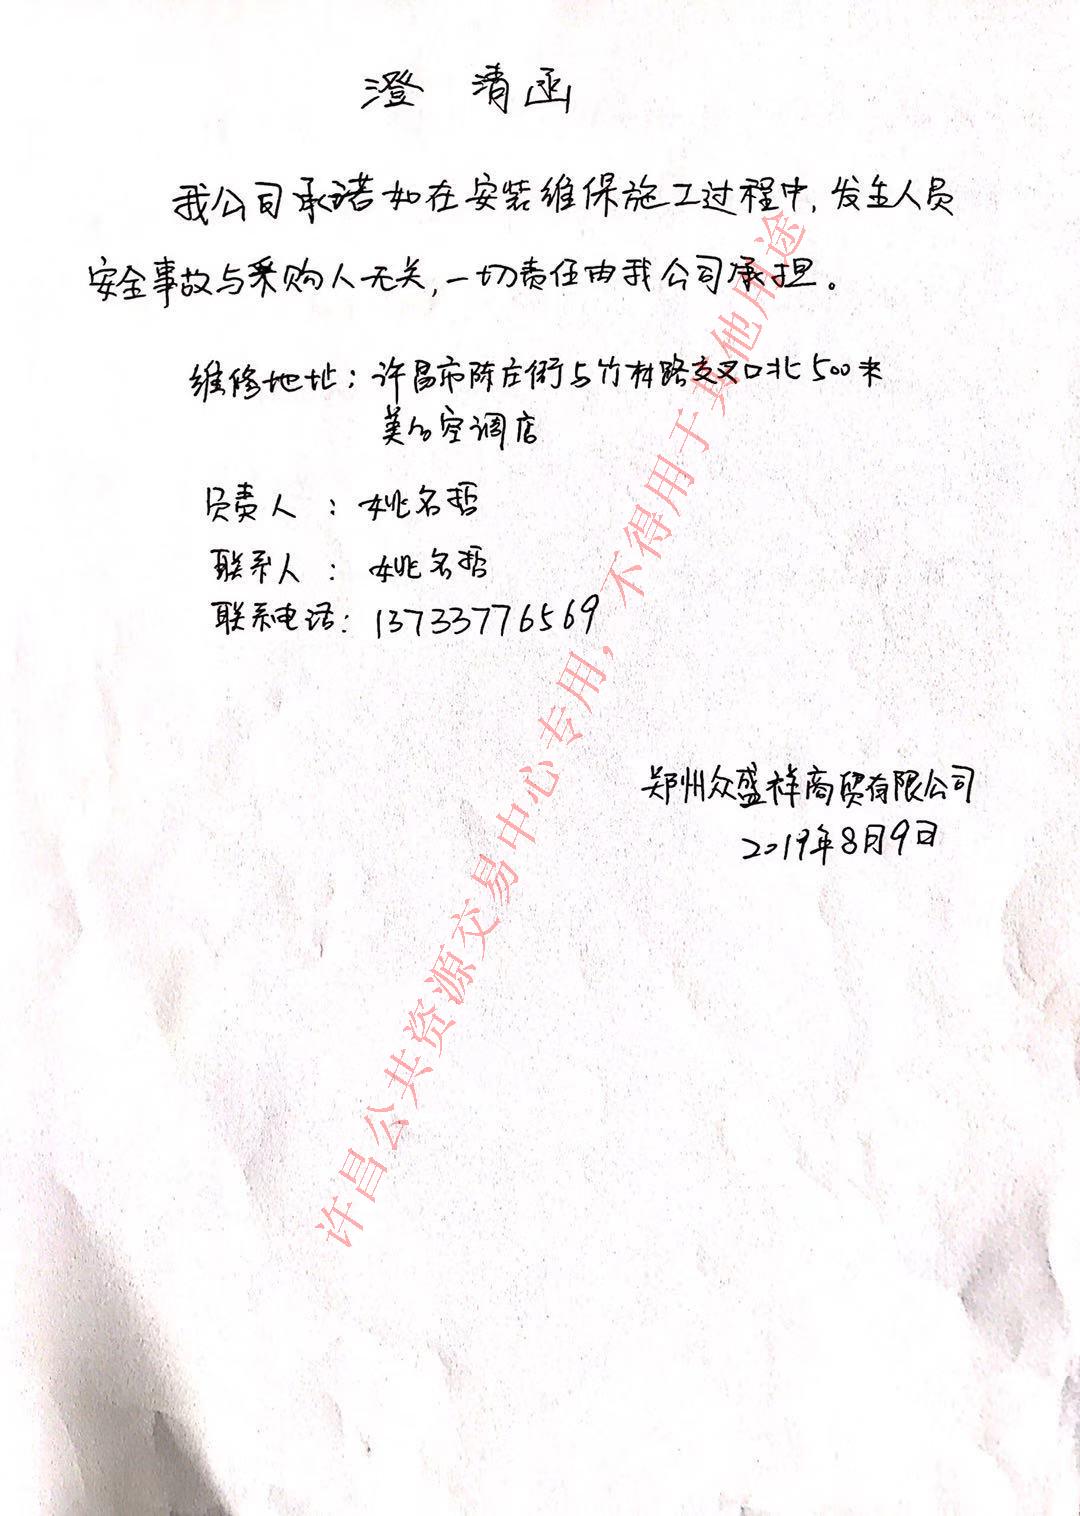 澄清函
我公司承诺如在安装维保施工过程中,发生人员
安全事故与采购人无关,一切责任由我公司承担。
维修地址:许昌市陈庄街与竹林路交叉口北500米
美的空调店
负责人:姚名哲
联系人:姚名哲
联系电话:13733776569
郑州众盛祥商贸有限公司
2019年8月9日
许昌公共资源交易中心专用,不得用于其他用途